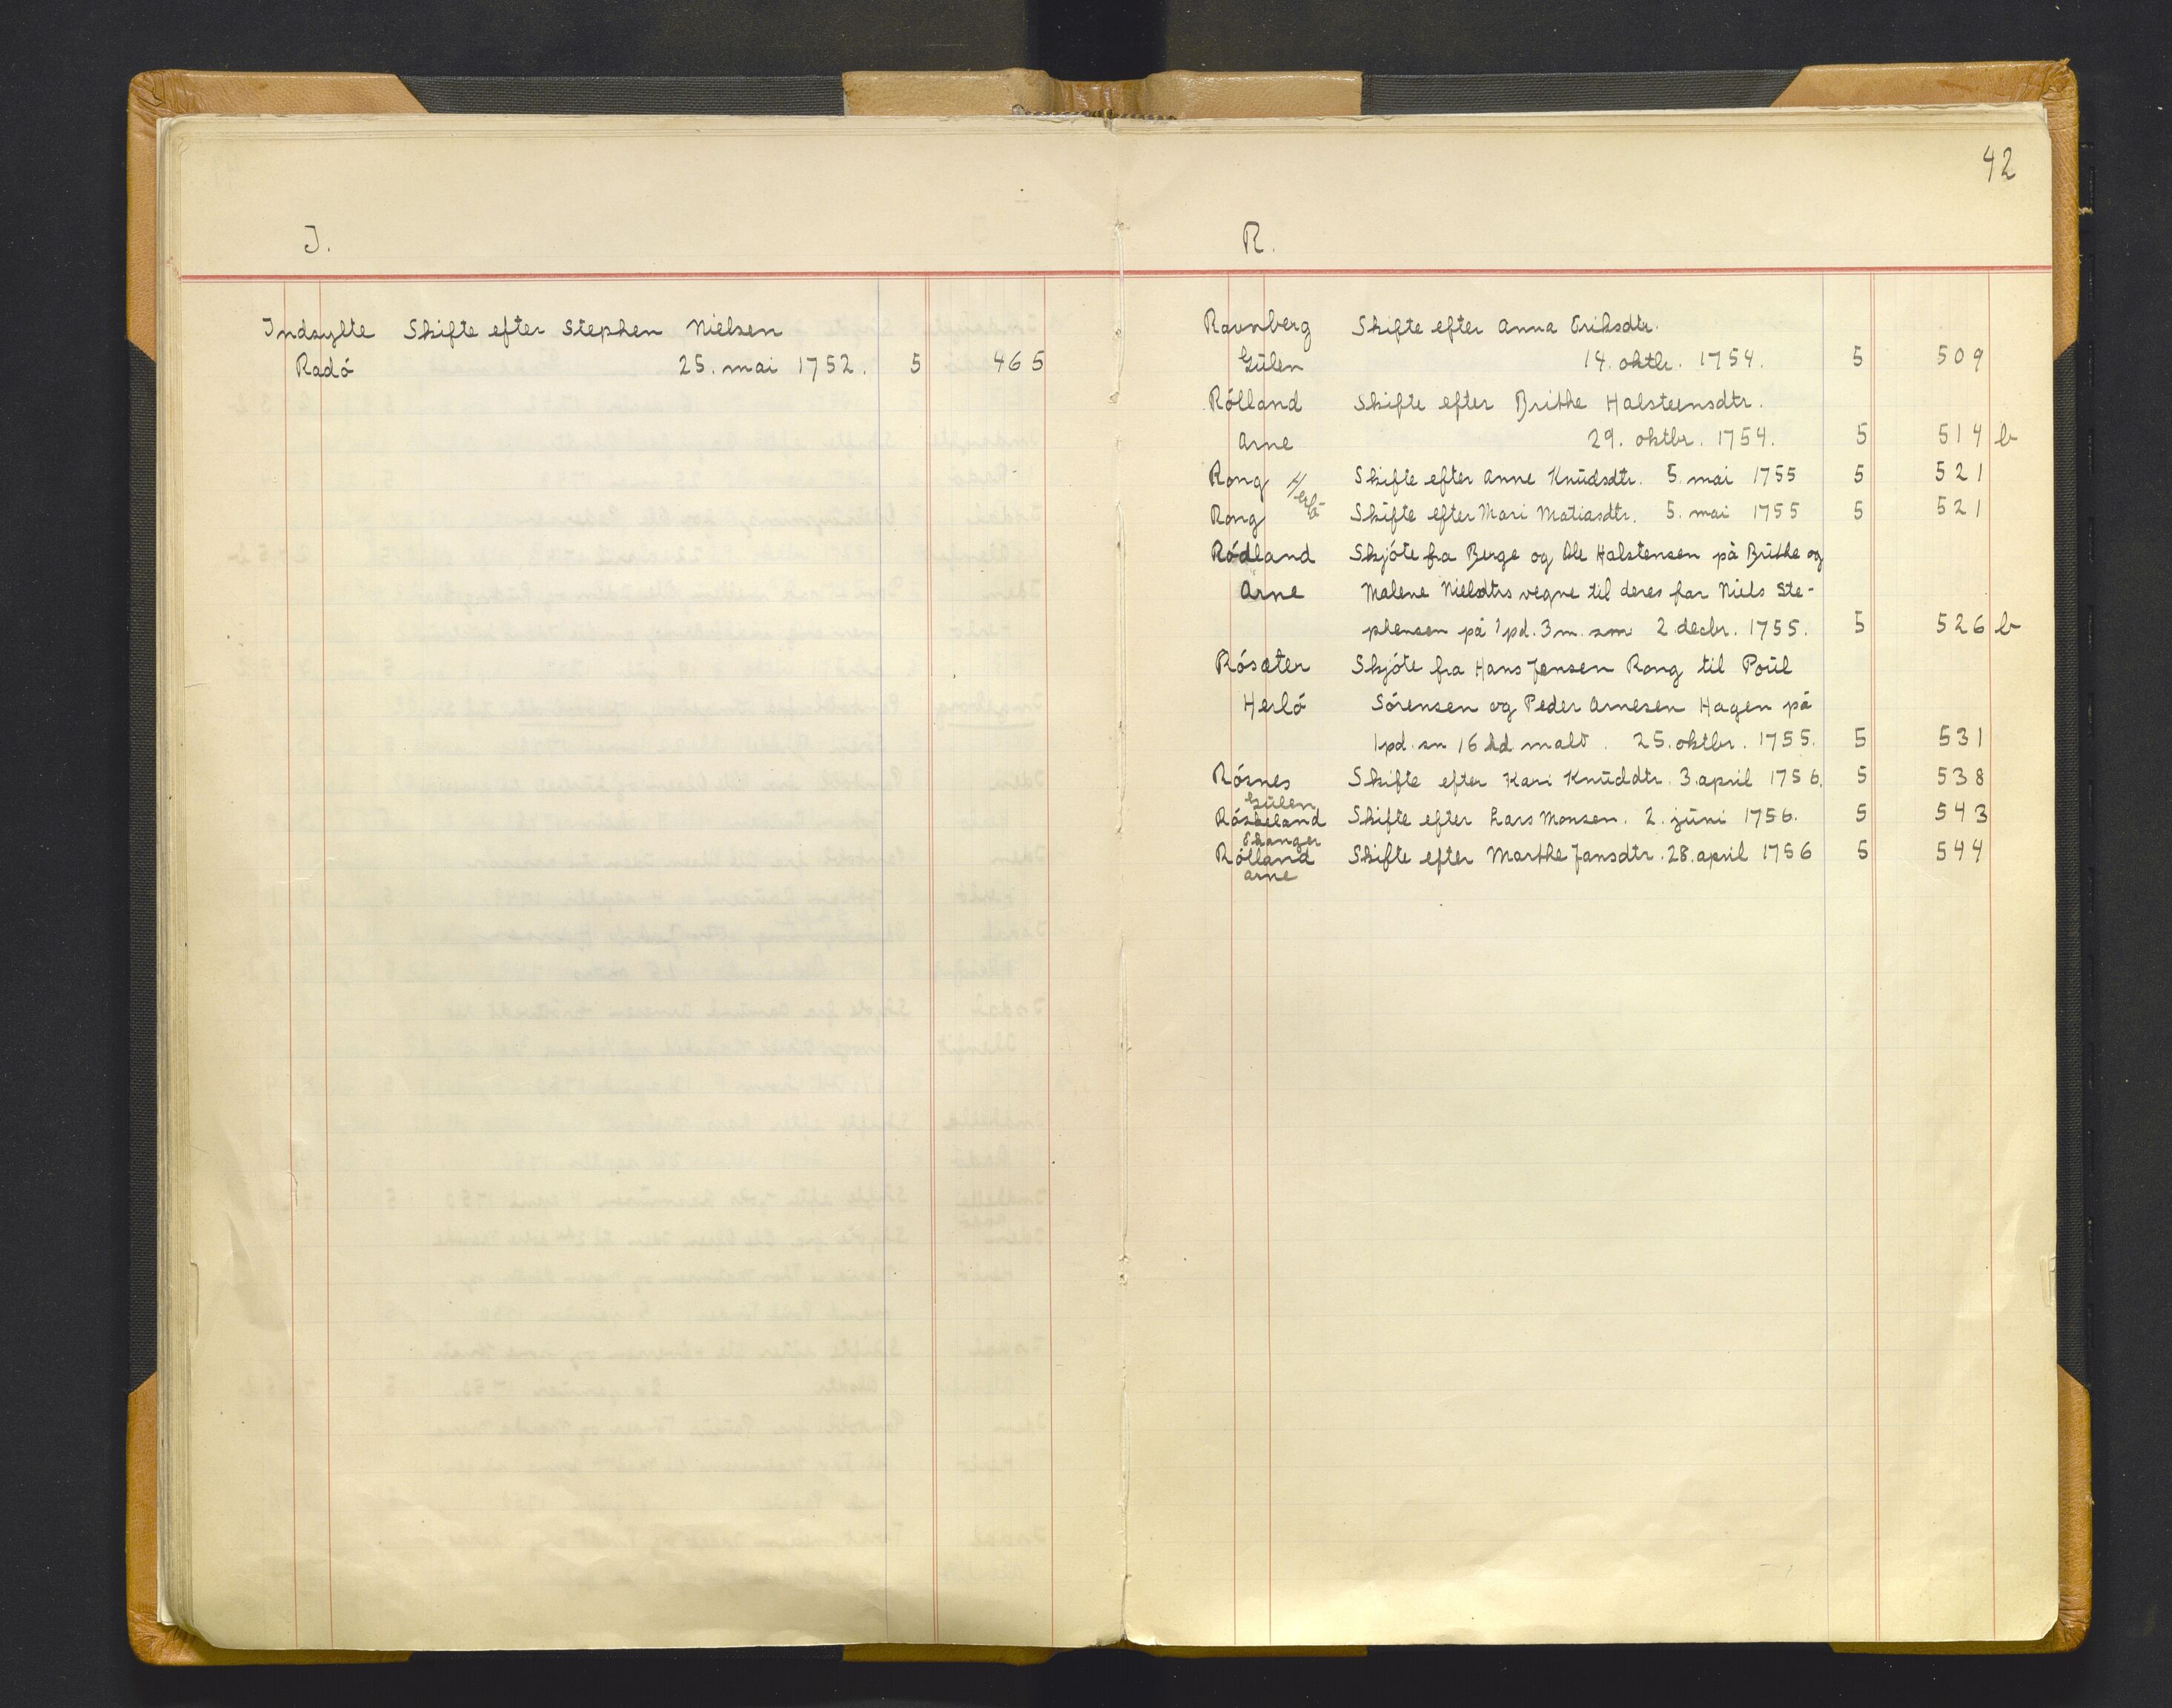 J.
Indsylte Skifte efter Stephen Nielsen
Radö 25. mai 1752. 5 465
42
R.
Ravnberg Skifte efter Anna Eriksdtr.
Gülen 14. oktbr. 1754. 5 509
Rölland Skifte efter Brithe Halsteensdtr.
Arne 29. oktbr. 1754. 5 514 b
Rong Herlö Skifte efter Anne Knüdsdtr. 5. mai 1755 5 521
Rong Skifte efter Mari Matiasdtr. 5. mai 1755 5 521
Rödland Skjöte fra Berge og Ole Halstensen på Brithe og
Arne Malene Nielsdtrs vegne til deres far Niels Ste-
phensen på 1 pd. 3 m. sm 2. decbr. 1755. 5 526 b
Rösæter Skjöte fra Hans Jensen Rong til Poül
Herlö Sörensen og Peder Arnesen Hagen på
1 pd. sm 16 kd malt. 25. oktbr. 1755. 5 531
Rösnes Skifte efter Kari Knüddtr. 3. april 1756. 5 538
Gülen
Röskeland Skifte efter Lars Monsen. 2. jüni 1756. 5 543
Ekanger
Rölland Skifte efter Marthe Jansdtr. 28. april 1756 5 544
Arne